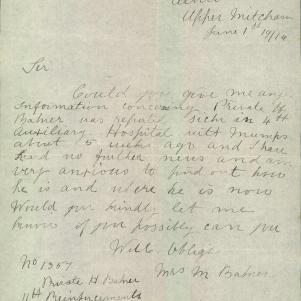 Upper Mitcham
June 1st 1916
Sir
Could you give me any
information concerning Private H
Balner was repated sick in 4th
Auxiliary Hospital with Mumps
about 5 weeks ago and I have
had no further news and am
very anxious to find out how
he is and where he is now
Would you kindly let me
know if you possibly can you
Will oblige
Mrs M Balner
No 1357
Private H Balner
11th Reinforcements